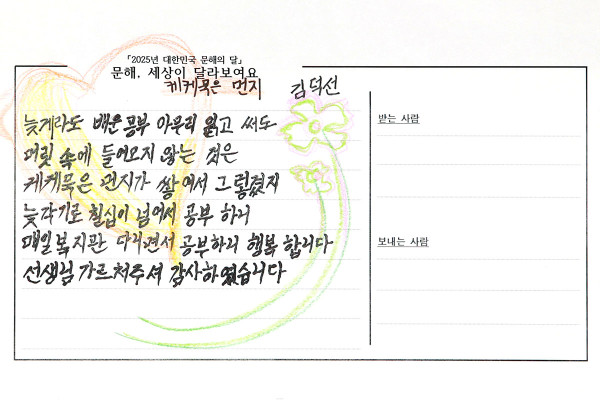 「2025년 대한민국 문해의 달」
문해, 세상이 달라보여요
케케묵은 먼지 김덕선
늦게라도 배운 공부 아무리 읽고 써도
머릿 속에 들어오지 않는 것은
케케묵은 먼지가 쌓여서 그렇겠지
늦각기로 칠십이 넘어서 공부 하니
매일 복지관 다니면서 공부하니 행복 합니다
선생님 가르처주셔 감사하였습니다
받는 사람
보내는 사람